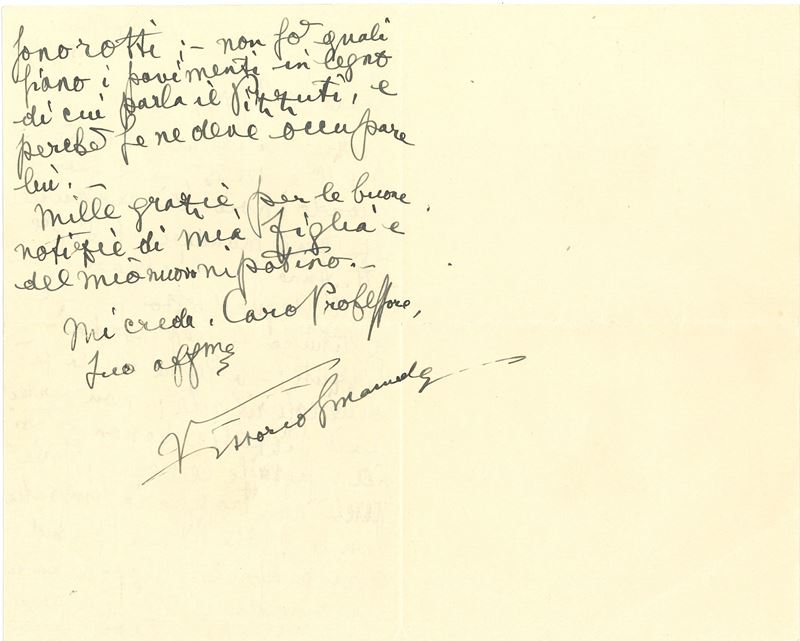 sono rotti; - non so quali
siano i pavimenti in legno
di cui parla il Pizzuti, e
perché se ne deve occupare
lui. -
Mille grazie per le buone
notizie di mia figlia e
del mio nuovo nipotino. -
Mi creda, Caro Professore,
suo affmo
Vittorio Emanuele